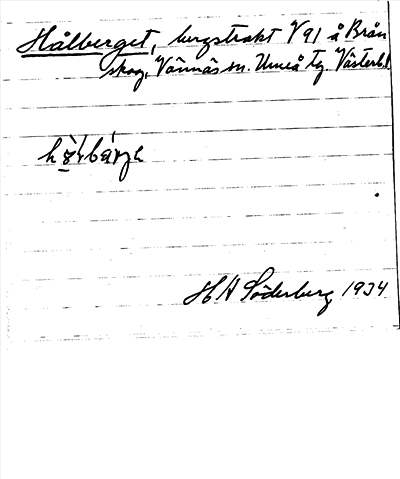 Hålberget, bergstrakt V 91 å Brån
skog, Vännäs sn. Umeå tg. Västerb.l
hö̀ĺbárje
H A Söderberg 1934